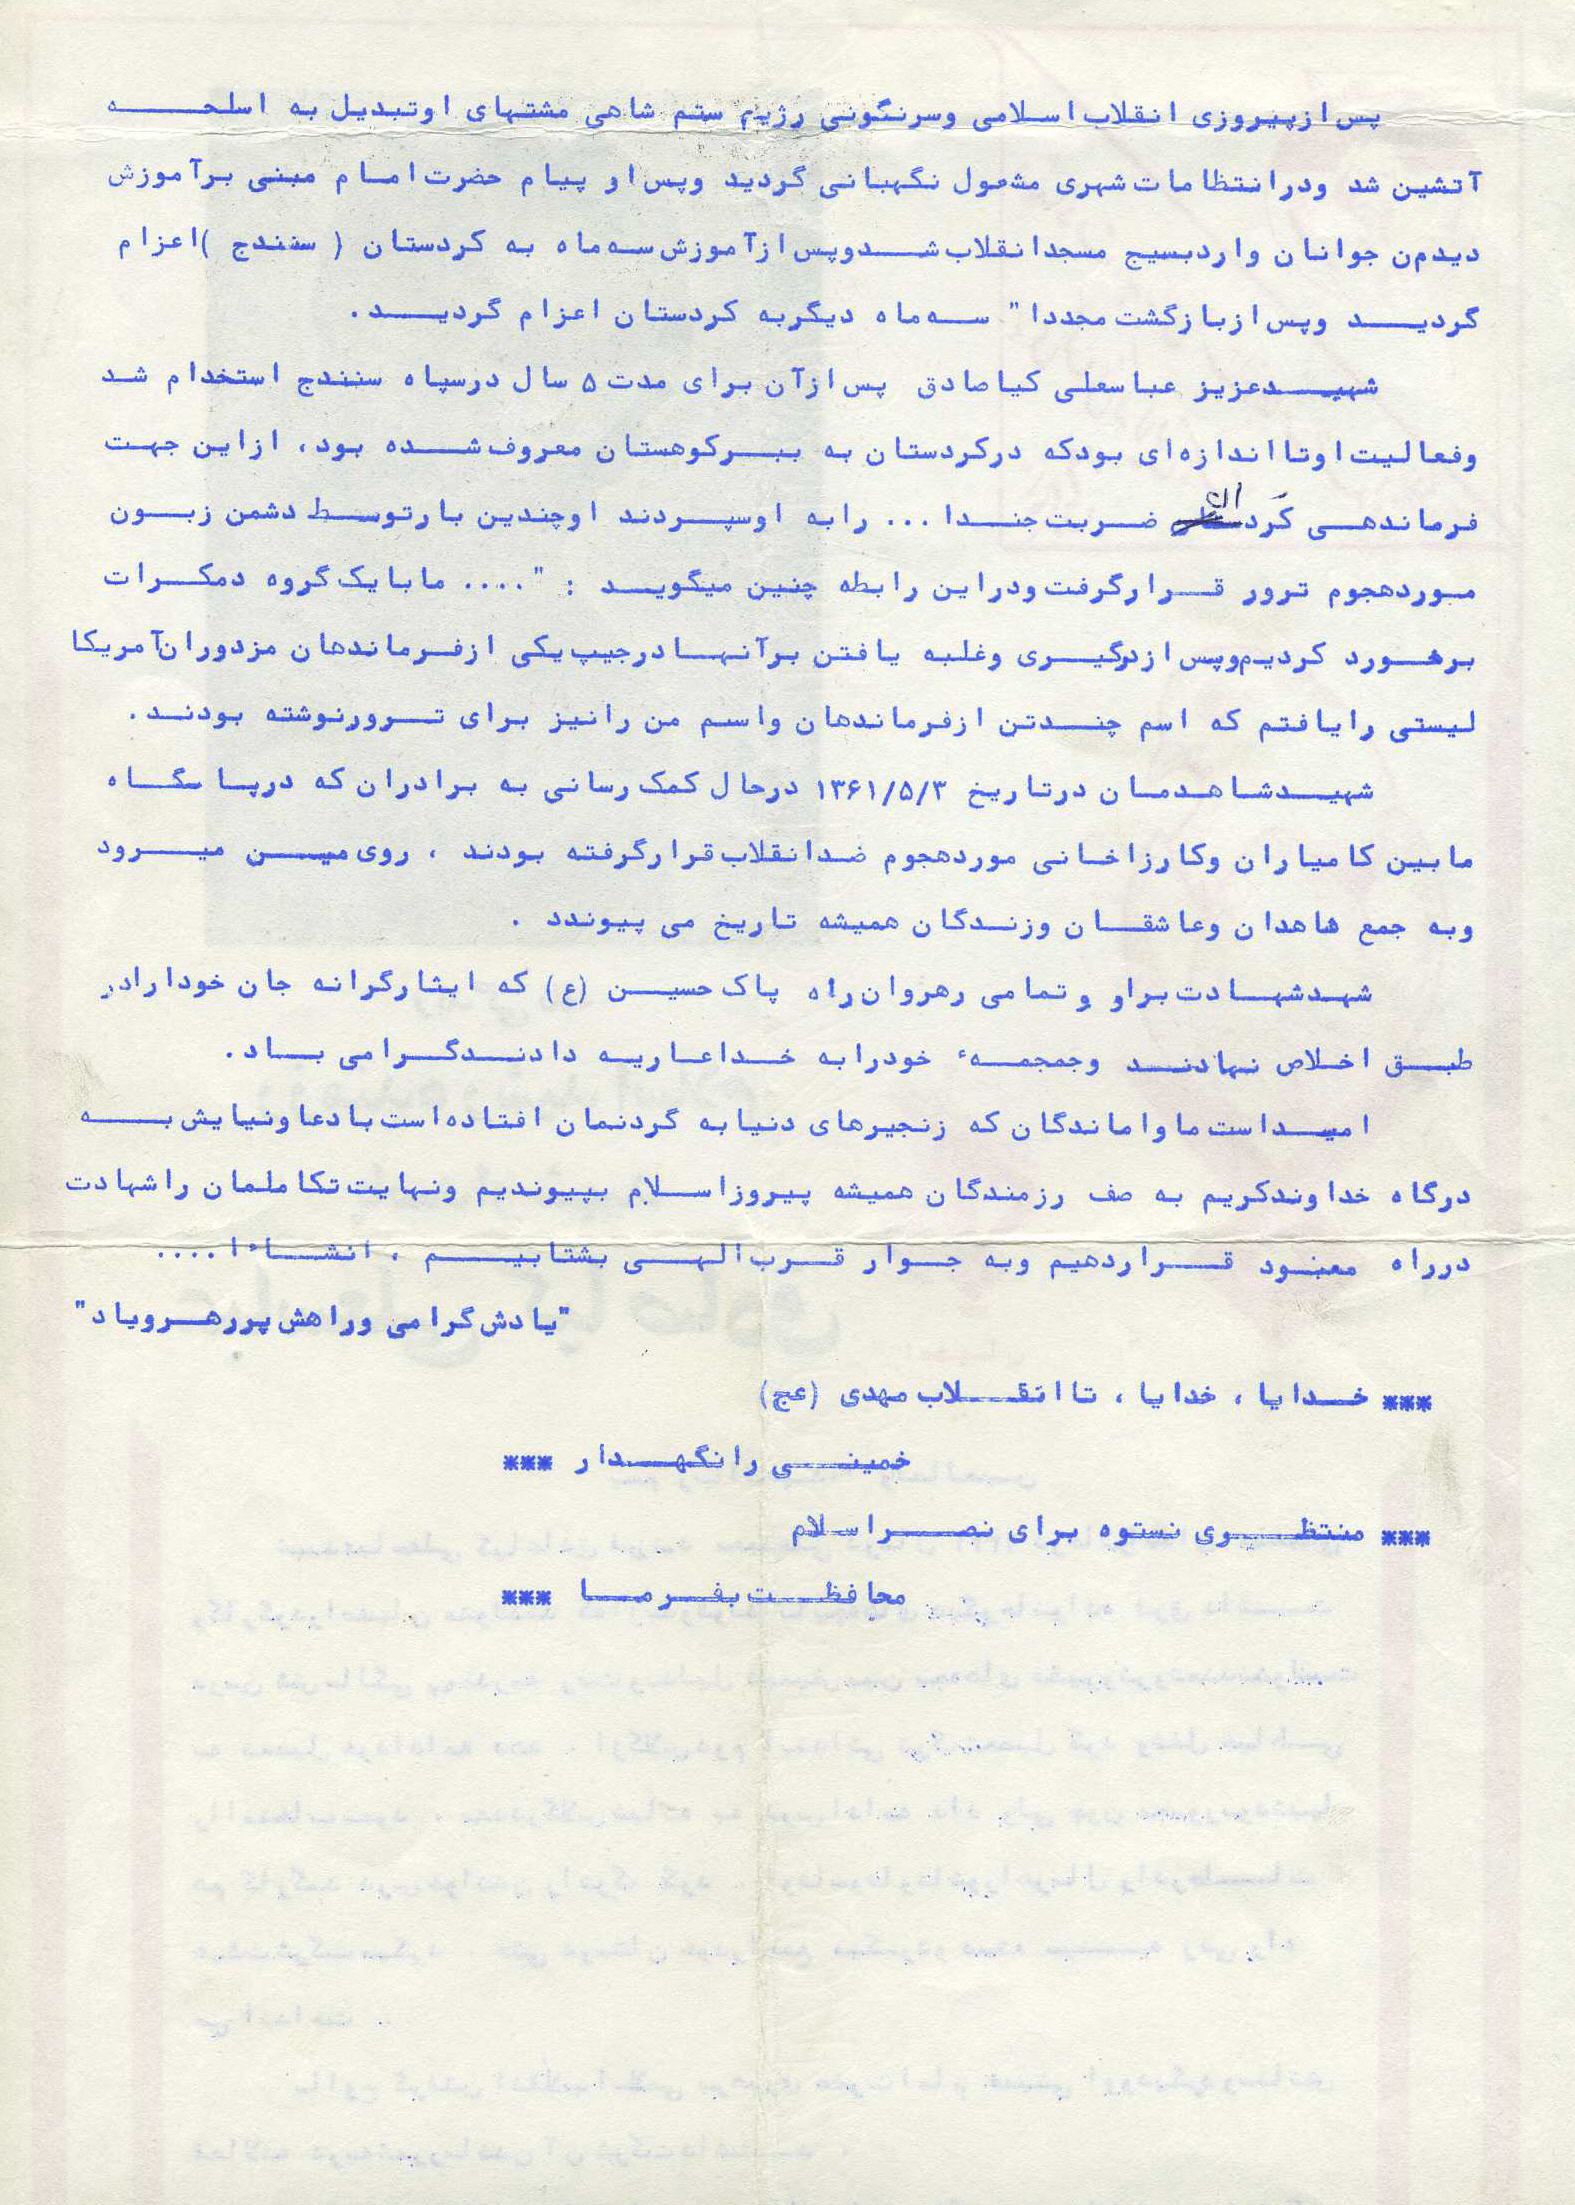 پس از پیروزی انقلاب اسلامی وسرنگونی رژیم ستم شاهی مشتهای اوتبدیل به اسلحه
آتشین شد ودرانتظامات شهری مشعول نگهبانی گردید وپس او پیام حضرت امام مبنی برآموزش
دیدمن جوانان واردبسیج مسجدانقلاب شدوپس ازآموزش سه ماه به کردستان ( سنندج )اعزام
گردید وپس ازبازگشت مجددا" سه ماه دیگربه کردستان اعزام گردید.
شهیدعزیز عباسعلی کیاصادق پس ازآن برای مدت ۵ سال درسپاه سنندج استخدام شد
وفعالیت اوتااندازه‌ای بودکه درکردستان به ببرکوهستان معروف شده بود، ازاین جهت
فرماندهی گردان ضربت جندا ... رابه اوسپردند اوچندین بارتوسط دشمن زبون
موردهجوم ترور قرارگرفت ودراین رابطه چنین میگوید : ".... مابایک گروه دمکرات
برخورد کردیم وپس ازدرگیری وغلبه یافتن برآنها درجیپ یکی ازفرماندهان مزدوران آمریکا
لیستی رایافتم که اسم چندتن ازفرماندهان واسم من رانیز برای ترورنوشته بودند.
شهیدشاهدمان درتاریخ ۱۳۶۱/۵/۳ درحال کمک رسانی به برادران که درپاسگاه
مابین کامیاران وکارزاخانی موردهجوم ضدانقلاب قرارگرفته بودند ، روی مین میرود
وبه جمع هاهدان وعاشقان وزندگان همیشه تاریخ می پیوندد .
شهدشهادت براو وتمامی رهروان راه پاک حسین (ع) که ایثارگرانه جان خودارادر
طبق اخلاص نهادند وجمجمهٔ خودرابه خداعاریه دادندگرامی باد.
امیداست ماواماندگان که زنجیرهای دنیابه گردنمان افتاده است بادعاونیایش به
درگاه خداوندکریم به صف رزمندگان همیشه پیروزاسلام بپیوندیم ونهایت تکاملمان راشهادت
درراه معبود قراردهیم وبه جوار قرب الهی بشتابیم ، انشاءا ....
"یادش گرامی وراهش پررهروباد"
*** خدایا ، خدایا ، تاانقلاب مهدی (عج)
خمینی رانگهدار ***
*** منتظری نستوه برای نصراسلام
محافظت بفرما ***